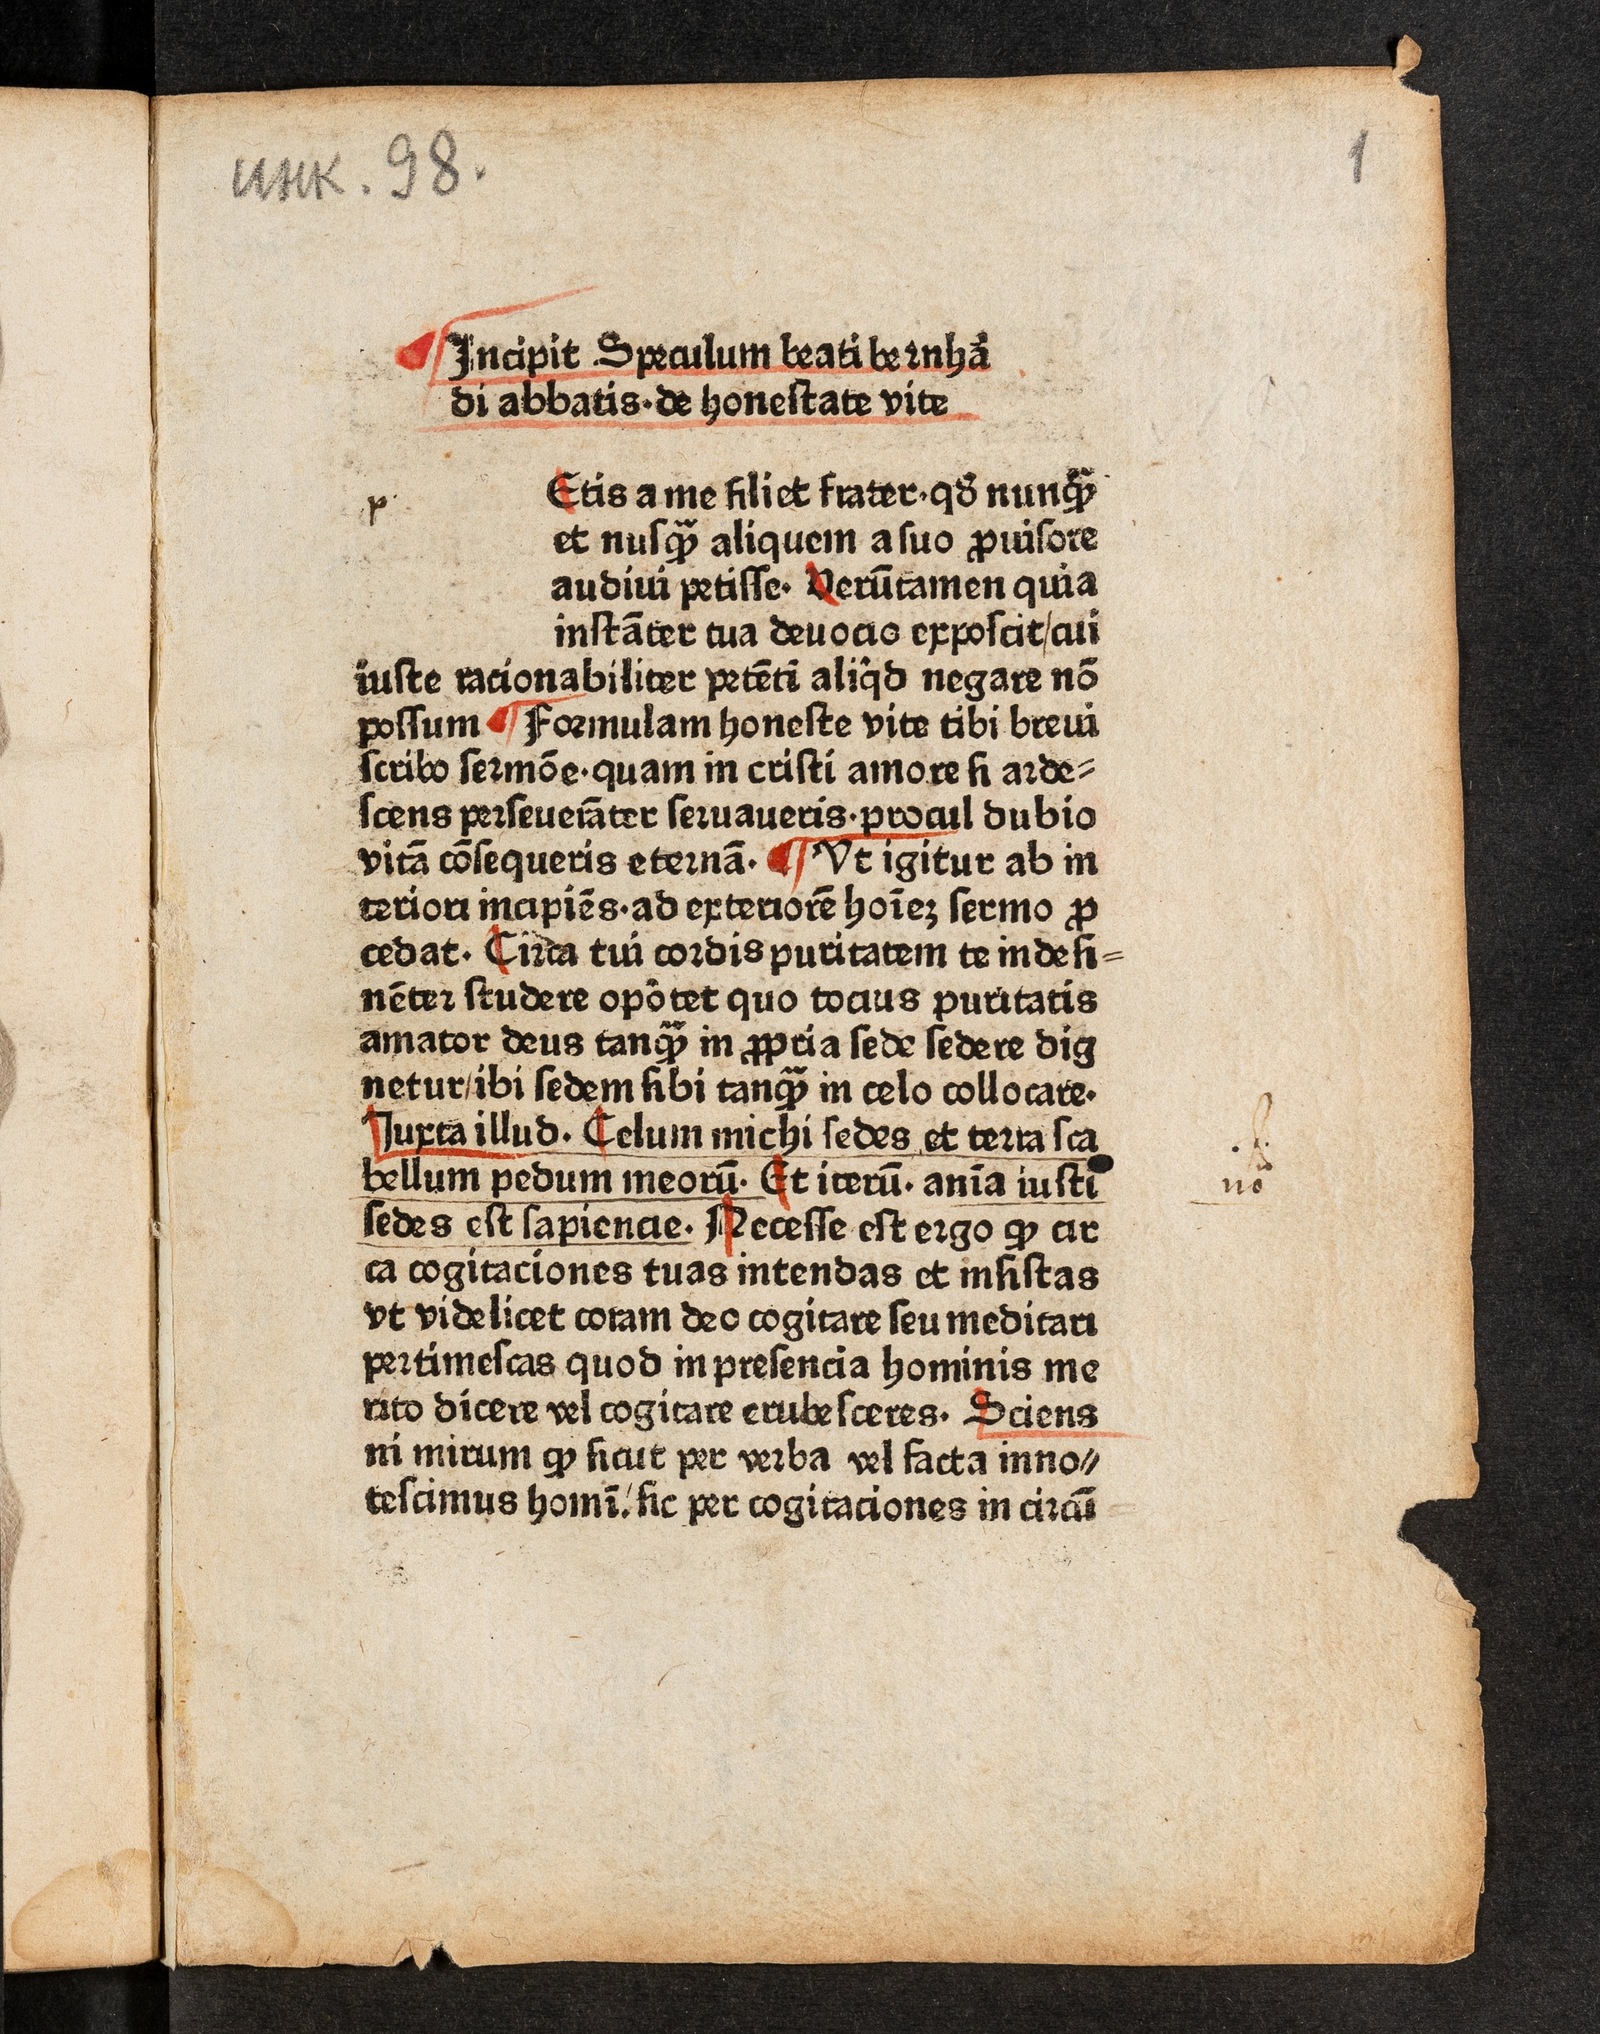 инк. 98.
1
Incipit Speculum beati bernhā
di abbatis·de honeſtate vite
p
Etis a me fili et frater·qď nunꝙ̄
et nuſꝙ̄ aliquem a ſuo ꝓuiſore
audiui petiſſe· Verūtamen quia
inſtāter tua deuocio expoſcit/cui
iuſte racionabiliter petēti aliq̇d negare nō
poſſum ¶ Formulam honeſte vite tibi breui
ſcribo ſermōe·quam in criſti amore ſi arde⸗
ſcens perſeuerāter ſeruaueris·procul dubio
vitā cōſequeris eternā· ¶ Vt igitur ab in
teriori incipiēs·ad exteriorē hoīeꝫ ſermo ꝓ
cedat· Circa tui cordis puritatem te indeſi⸗
nēter ſtudere opōtet quo tocius puritatis
amator deus tanꝙ̄ in ꝓpria ſede ſedere dig
netur/ibi ſedem ſibi tanꝙ̄ in celo collocare·
Iuxta illud· Celum michi ſedes et terra ſca
bellum pedum meorū· Et iterū· anīa iuſti
no
ſedes eſt ſapiencie· Neceſſe eſt ergo ꝙ cir
ca cogitaciones tuas intendas et inſiſtas
vt videlicet coram deo cogitare ſeu meditari
pertimeſcas quod in preſencia hominis me
rito dicere vel cogitare erubeſceres· Sciens
ni mirum ꝙ ſicut per verba vel facta inno⸗
teſcimus homī:/ſic per cogitaciones in circūi